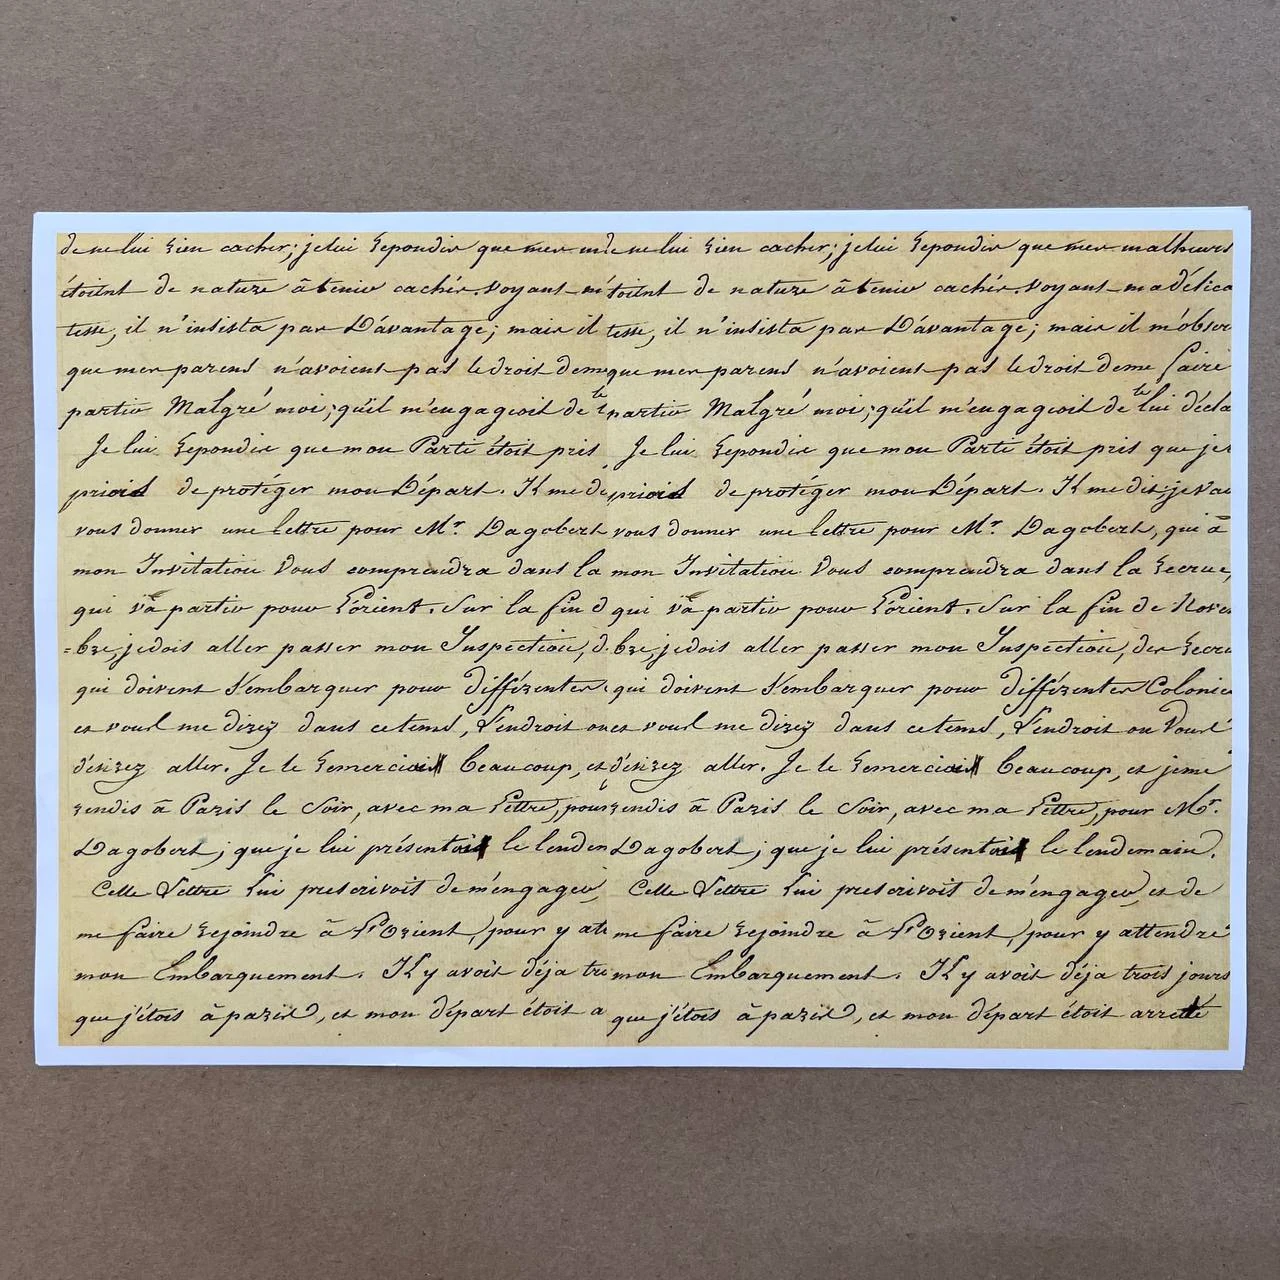 de ne lui rien cacher; je lui repondis que mes m de ne lui rien cacher; je lui repondis que mes malheurs
étoient de nature à tenir cachés. Voyant m étoient de nature à tenir cachés. Voyant ma délica
tesse, il n'insista pas D'avantage; mais il tesse, il n'insista pas D'avantage; mais il m'obser
que mes parens n'avoient pas le droit de me que mes parens n'avoient pas le droit de me faire
partir Malgré moi; qu'il m'engageoit de te partir Malgré moi; qu'il m'engageoit de te lui décla
Je lui repondis que mon Parti étoit pris Je lui repondis que mon Parti étoit pris que je
priois de protéger mon Départ. Il me d priois de protéger mon Départ. Il me dit; je vai
vous donner une lettre pour Mr. Dagobert vous donner une lettre pour Mr. Dagobert, qui à
mon Invitation Vous comprendra dans la mon Invitation Vous comprendra dans la recrue,
qui và partir pour l'orient. Sur la fin d qui và partir pour l'orient. Sur la fin de Nove
=bre, je dois aller passer mon Inspection, d bre, je dois aller passer mon Inspection, des recru
qui doivent s'embarquer pour différentes qui doivent s'embarquer pour différentes Colonie
et vous me direz dans ce tems, l'endroit ou et vous me direz dans ce tems, l'endroit ou Vous
désirez aller. Je le remerciai beaucoup, et désirez aller. Je le remerciai beaucoup, et je me
rendis à Paris le Soir, avec ma Lettre, pour rendis à Paris le Soir, avec ma Lettre, pour Mr.
Dagobert; que je lui présentai le lenden Dagobert; que je lui présentai le lendemain.
Cette Lettre Lui prescrivoit de m'engager, Cette Lettre Lui prescrivoit de m'engager, et de
me faire rejoindre à l'Orient, pour y att me faire rejoindre à l'Orient, pour y attendre
mon Embarquement. Il y avoit déja tr mon Embarquement. Il y avoit déja trois jours
que j'étois à paris, et mon départ étoit a que j'étois à paris, et mon départ étoit arretté